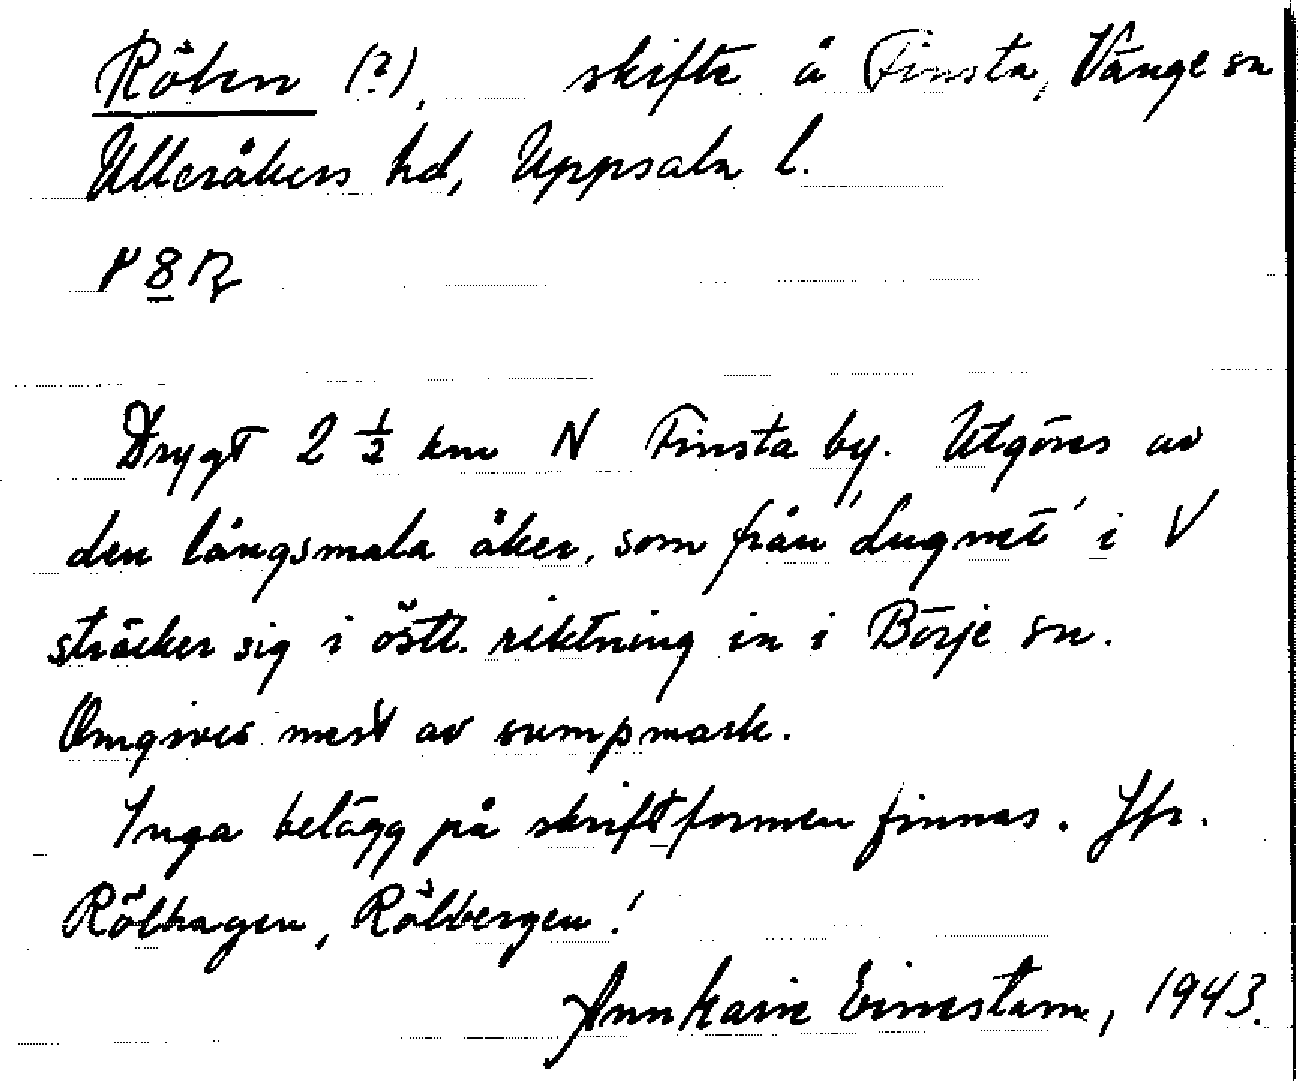 Rölen (?), skifte å Finsta, Vänge sn
Ulleråkers hd, Uppsala l.
Drygt 2 1/2 km N Finsta by. Utgöres av
den långsmala åker, som från 'Lugnet' i V
sträcker sig i östl. riktning in i Börje sn.
Omgives mest av sumpmark.
Inga belägg på skriftformen finnas. Jfr.
Rölhagen, Rölbergen!
Ann Karin Einestam, 1943.